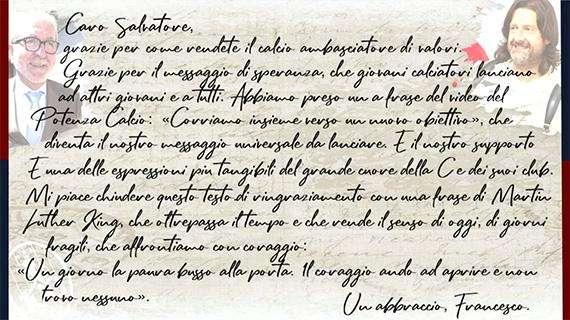 Caro Salvatore,
grazie per come rendete il calcio ambasciatore di valori.
Grazie per il messaggio di speranza, che giovani calciatori lanciano
ad altri giovani e a tutti. Abbiamo preso un a frase del video del
Potenza Calcio: «Corriamo insieme verso un nuovo obiettivo», che
diventa il nostro messaggio universale da lanciare. E il nostro supporto
E una delle espressioni piu tangibili del grande cuore della C e dei suoi club.
Mi piace chindere questo testo di ringraziamento con una frase di Martin
Luther King, che oltrepassa il tempo e che rende il senso di oggi, di giorni
fragili, che affrontiamo con coraggio:
«Un giorno la paura busso alla porta. Il coraggio ando ad aprire e non
trovo nessuno».
Un abbraccio, Francesco.